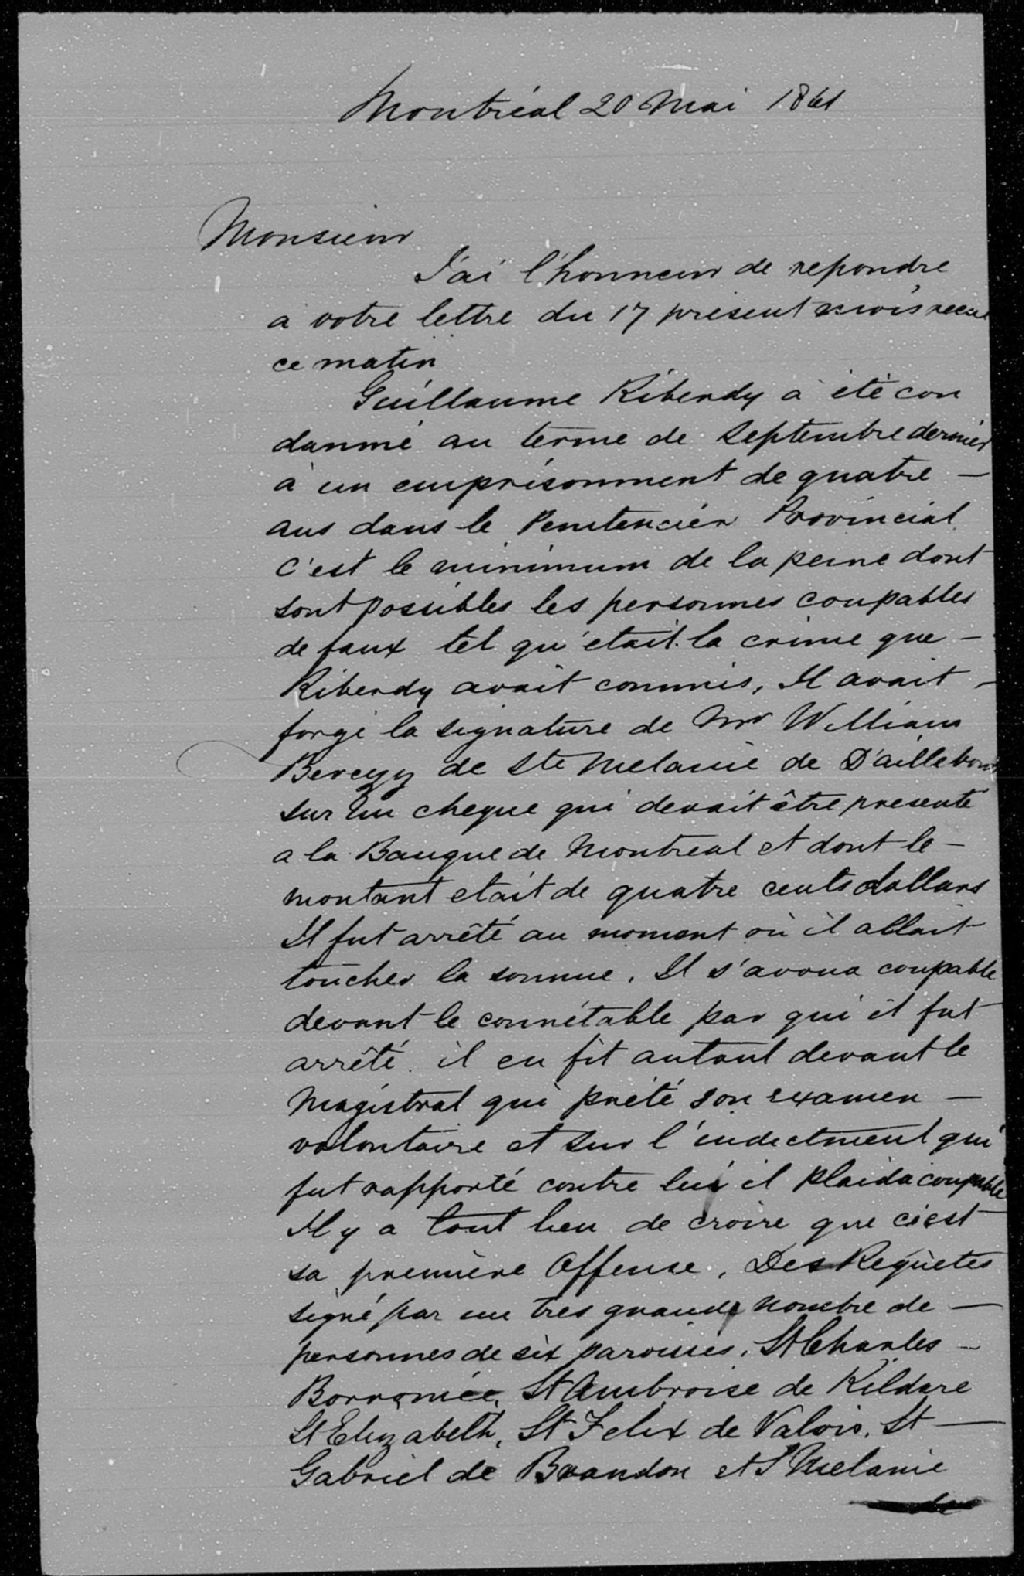 Montréal 20 Mai 1861
Monsieur
J'ai l'honneur de repondre
a votre lettre du 17 présent mois recue
ce matin
Guillaume Riberdy a été con
danmé au terme de Septembre dernier
a un emprisonment de quatre —
ans dans le Penitencier Provincial
C'est le minimum de la peine dont
sont possibles les personnes coupables
de faux tel qu'etait la crime que —
Riberdy avait commis, Il avait —
forgé la signature de Mr William
Berczy de Ste Melanie de D'aillebout
sur un cheque qui devait être presenté
a la Banque de Montreal et dont le —
montant etait de quatre cents dollars
Il fut arrêté au moment où il allait
toucher la somme. Il s'avoua coupable
devant le connétable par qui il fut
arrêté. il en fit autant devant le
Magistrat qui prété son examen —
volontaire et sur l'indectment qui
fut rapporté contre lui il plaida coupable
Il y a tout lieu de croire que c'est
sa première Offense, Des Requêtes
signé par un tres grande nombre de —
personnes de six paroisses. St Charles —
Borromée, St Ambroise de Kildare
St Elizabeth, St Felix de Valois, St —
Gabriel de Brandon et St Melanie
de